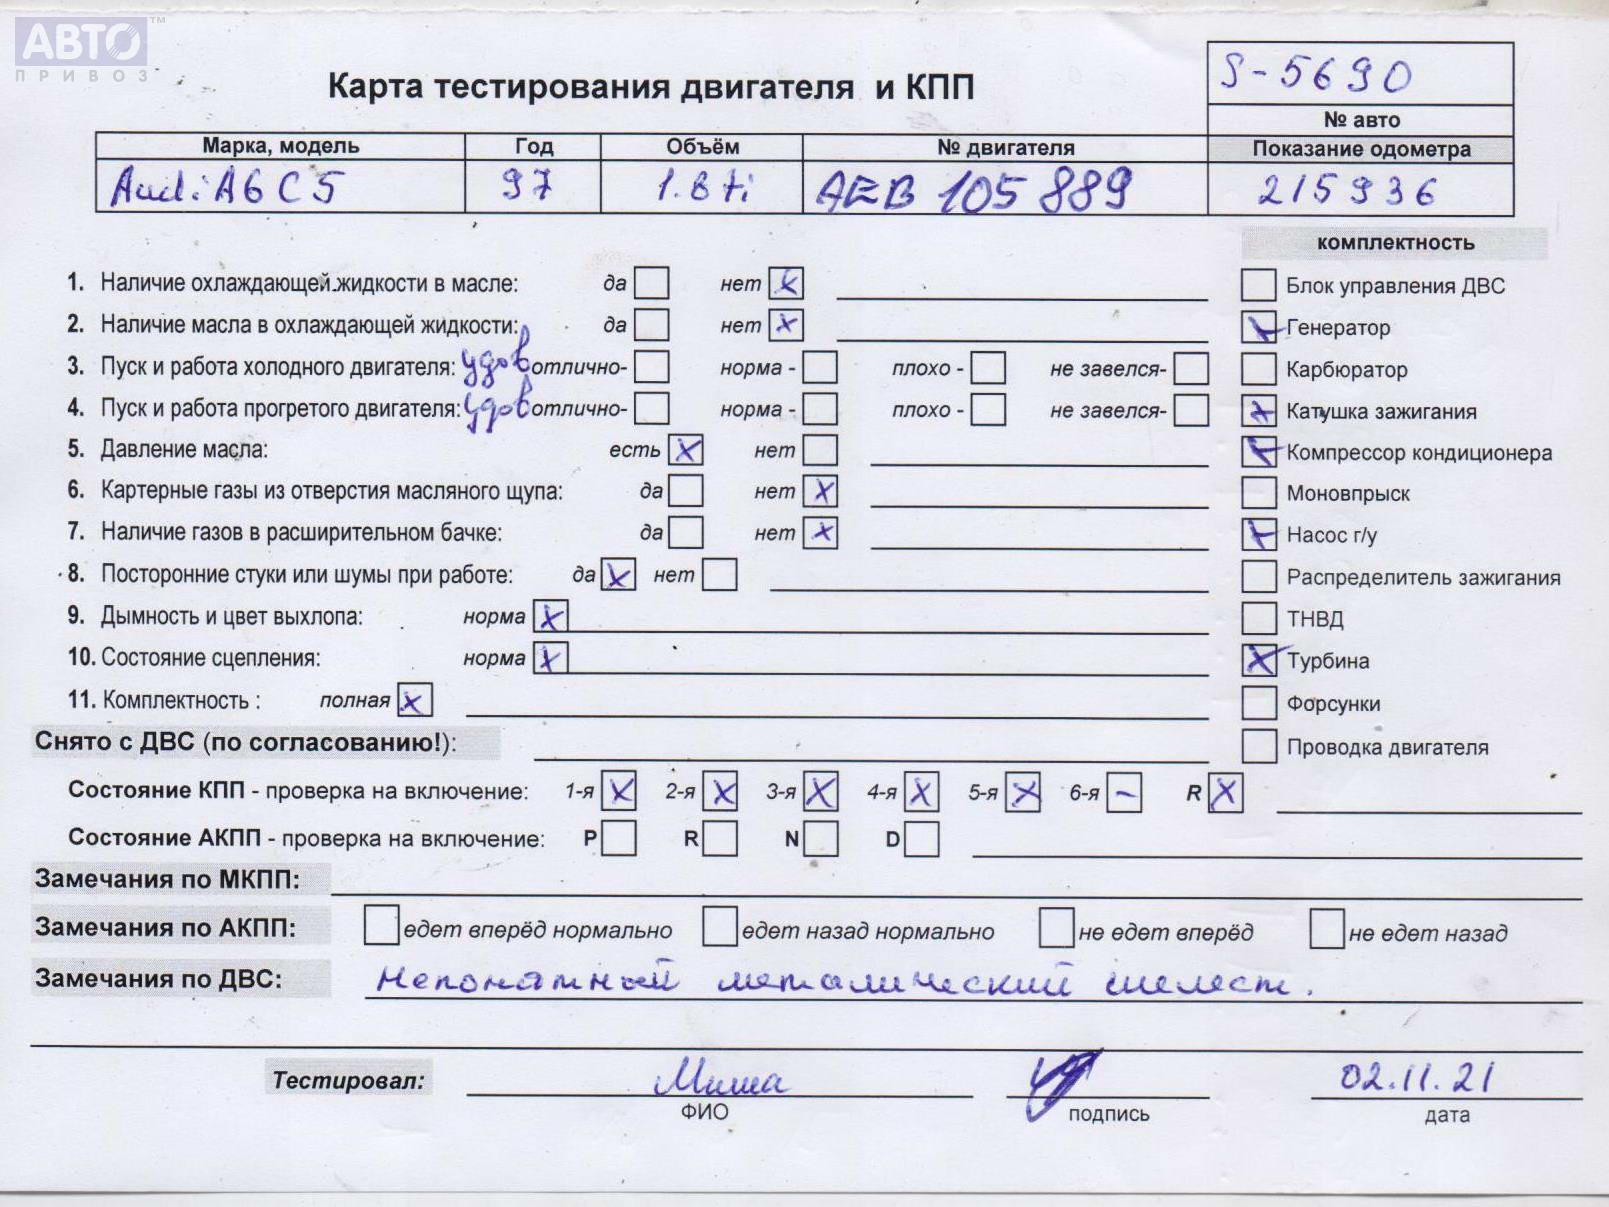 АВТО™
ПРИВОЗ
Карта тестирования двигателя и КПП
S-5690
№ авто
Марка, модель Год Объём № двигателя Показание одометра
Audi A6 C5 97 1.8 ti AEB 105889 215936
комплектность
1. Наличие охлаждающей жидкости в масле: да нет x
Блок управления ДВС
2. Наличие масла в охлаждающей жидкости: да нет x
x Генератор
3. Пуск и работа холодного двигателя: удов отлично- норма - плохо - не завелся-
Карбюратор
4. Пуск и работа прогретого двигателя: удов отлично- норма - плохо - не завелся-
x Катушка зажигания
5. Давление масла: есть x нет
x Компрессор кондиционера
6. Картерные газы из отверстия масляного щупа: да нет x
Моновпрыск
7. Наличие газов в расширительном бачке: да нет x
x Насос г/у
8. Посторонние стуки или шумы при работе: да x нет
Распределитель зажигания
9. Дымность и цвет выхлопа: норма x
ТНВД
10. Состояние сцепления: норма x
x Турбина
11. Комплектность : полная x
Форсунки
Снято с ДВС (по согласованию!):
Проводка двигателя
Состояние КПП - проверка на включение: 1-я x 2-я x 3-я x 4-я x 5-я x 6-я - R x
Состояние АКПП - проверка на включение: P R N D
Замечания по МКПП:
Замечания по АКПП: едет вперёд нормально едет назад нормально не едет вперёд не едет назад
Замечания по ДВС: Непонятный металический шелест.
Тестировал: Миша 02.11.21
ФИО подпись дата